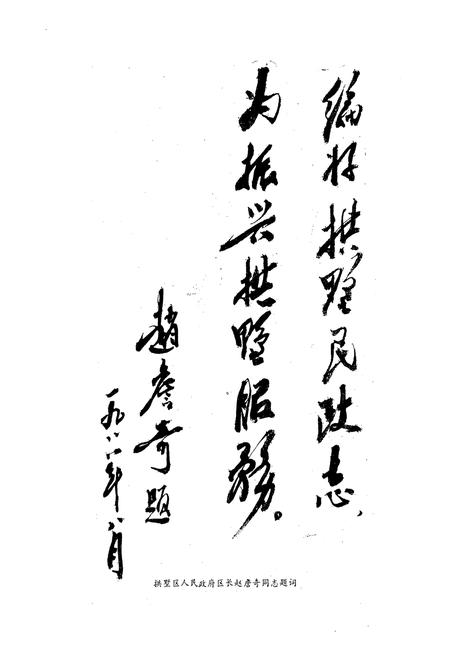 编好拱墅民政志,
为振兴拱墅服務。
趙詹奇题
一九八八年八月
拱墅区人民政府区长赵詹奇同志题词